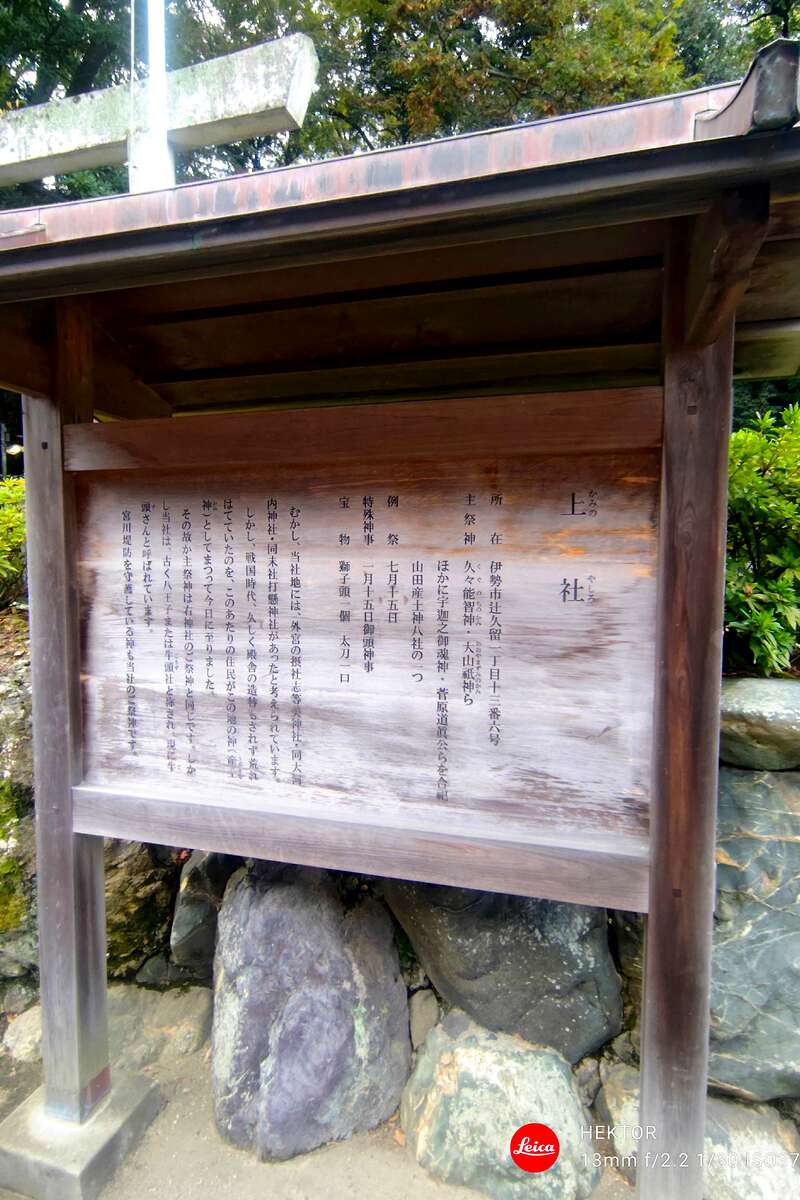 上社
かみの やしろ
所在 伊勢市辻久留一丁目十三番六号
主祭神 久々能智神・大山祇神ら
くぐのちのかみ おおやまずみのかみ
ほかに宇迦之御魂神・菅原道真公らを合祀
山田産土神八社の一つ
例祭 七月十五日
特殊神事 一月十五日御頭神事
宝物 獅子頭 個 太刀一口
むかし、当社地には、外宮の摂社志等美神社・同大河
内神社・同末社打懸神社があったと考えられています。
しかし、戦国時代、久しく殿舎の造替もされず荒れ
はてていたのを、このあたりの住民がこの地の神（産土
神）としてまつって今日に至りました。
その故か主祭神は右神社のご祭神と同じです。しか
し当社は、古く八王子または牛頭社と称され、現に牛
頭さんと呼ばれています。
宮川堤防を守護している神も当社のご祭神です。
Leica
HEKTOR
13mm f/2.2